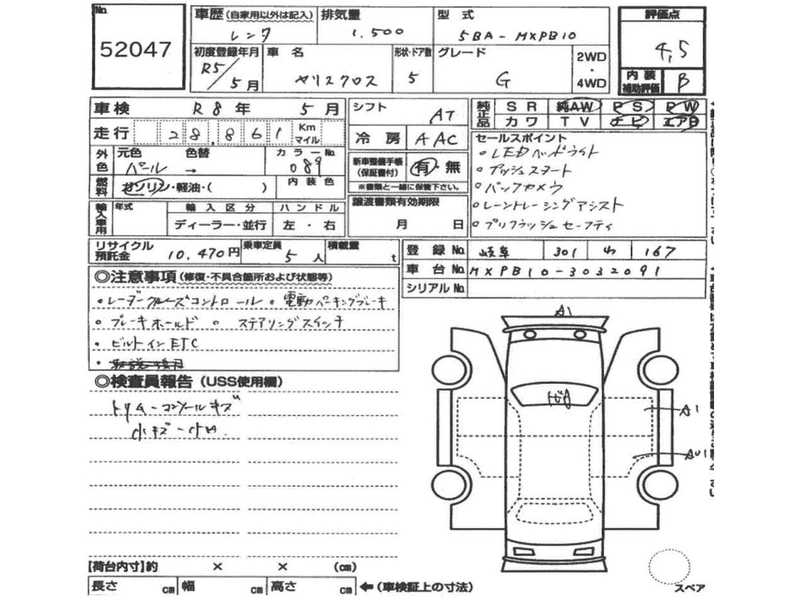 No. 52047
車歴 (自家用以外は記入) レンタ 排気量 1,500 型式 5BA-MXPB10
初度登録年月 R5/5月 車名 ヤリスクロス 形状・ドア数 5 グレード G 2WD・4WD
評価点 4.5
内装補助評価 B
車検 R8年 5月 シフト AT
走行 28,861 Km マイル 冷房 AAC
純正品 SR 純AW PS PW
カワ TV ナビ エアB
外色 元色 パール 色替 → カラーNo. 089
燃料 ガソリン・軽油・( ) 内装色
新車整備手帳 (保証書付) 有 無
※書類と一緒に保管下さい。
輸入車用 年式 輸入区分 ディーラー・並行 ハンドル 左・右
譲渡書類有効期限 月 日
セールスポイント
・LEDヘッドライト
・プッシュスタート
・バックカメラ
・レーントレーシングアシスト
・プリクラッシュセーフティ
リサイクル預託金 10,470円 乗車定員 5人 積載量 t
登録No. 岐阜 301 わ 167
車台No. MXPB10-3032091
シリアルNo.
◎注意事項 (修復・不具合箇所および状態等)
・レーダークルーズコントロール ・電動パーキングブレーキ
・ブレーキホールド ・ステアリングスイッチ
・ビルトインETC
◎検査員報告 (USS使用欄)
トリム-コンソールキズ
小キズ-小凹
A1
トビA
A1
AU1
【荷台内寸】約 × × (cm)
長さ cm 幅 cm 高さ cm ←(車検証上の寸法)
スペア